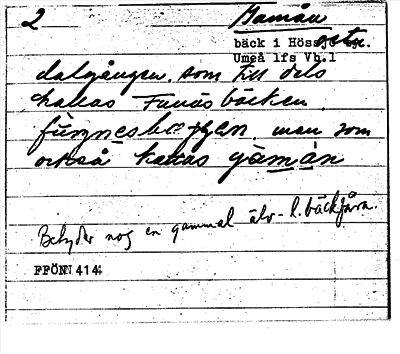 2 Gamån
bäck i Hössjö
Umeå lfs Vb.1
dalgången. som till dels
kallas Funäsbäcken
men som
också kallas gàmàn
Betyder nog en gammal älv- l. bäckfåra.
FFÖN 414: